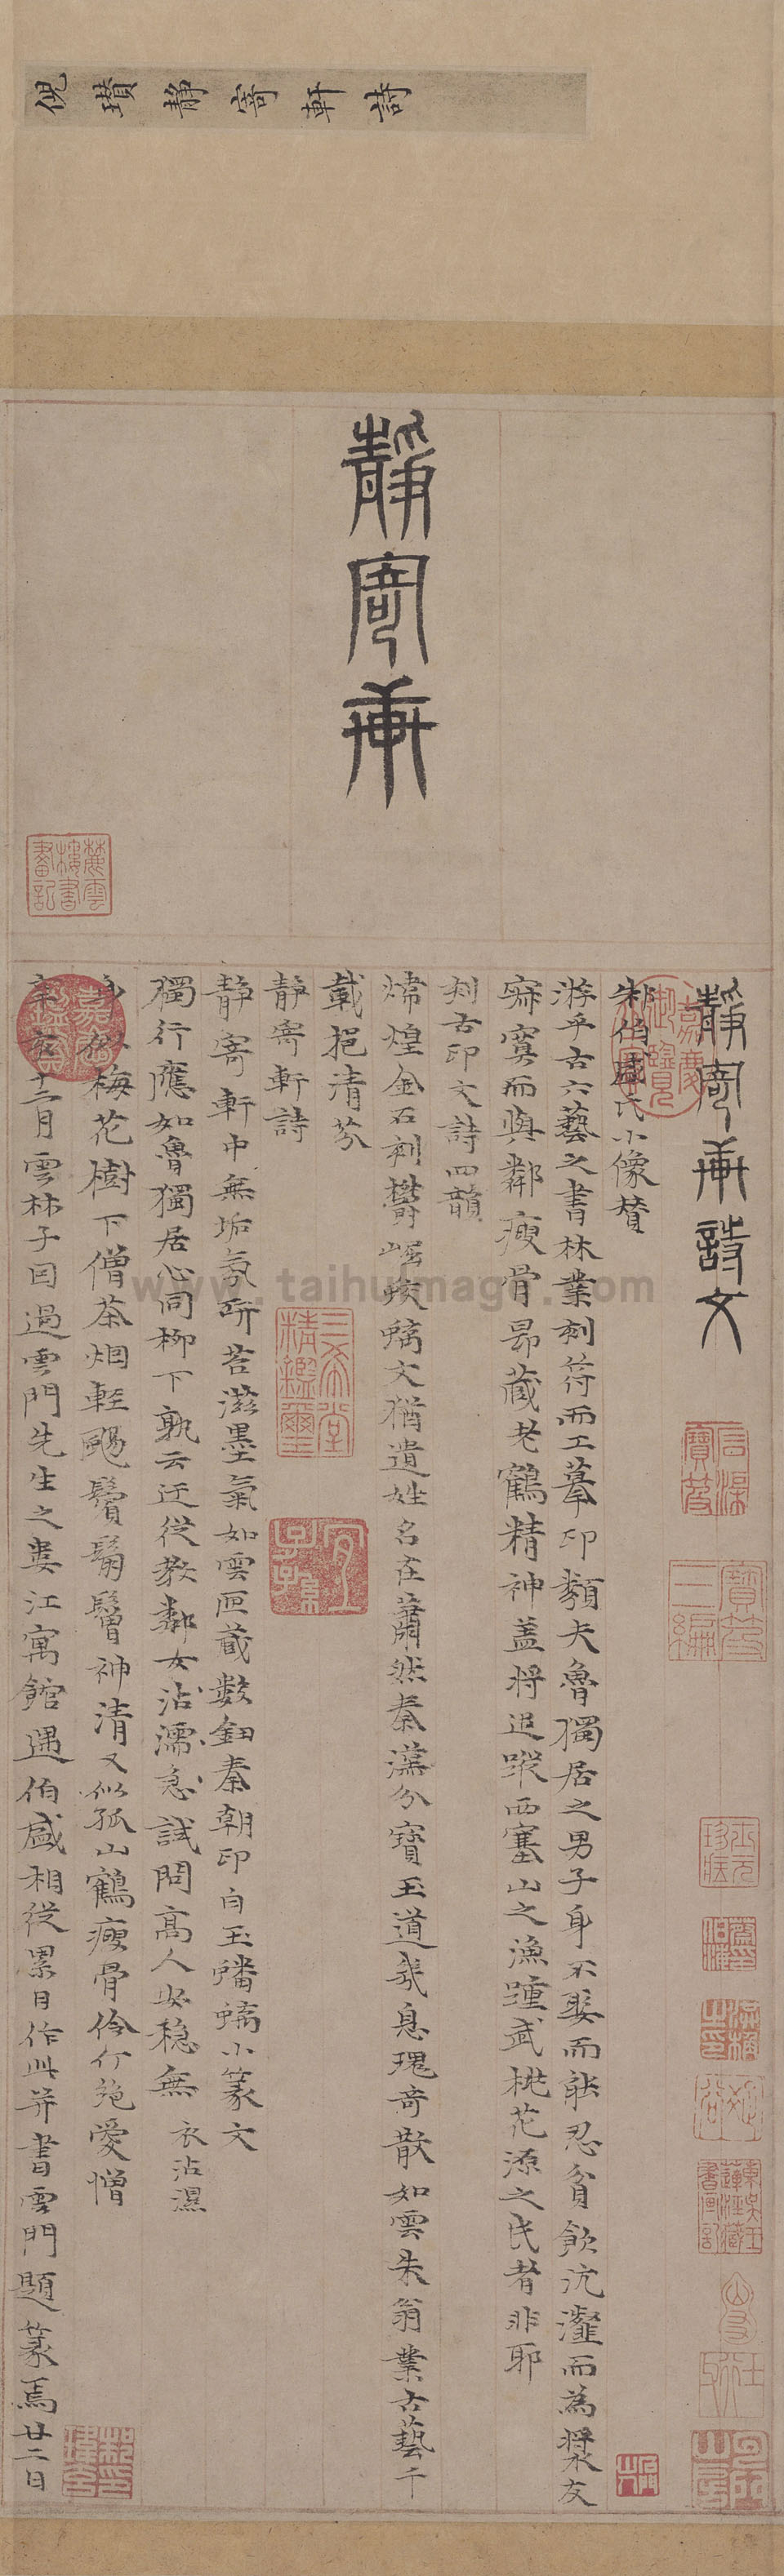 倪瓚靜寄軒詩
靜寄軒
靜寄軒詩文
朱伯盛氏小像贊
游乎古六藝之書林業刻符而工摹印類夫魯獨居之男子身不娶而能忍貧飲沆瀣而為漿友
寂寞而與鄰瘦骨昂藏老鶴精神蓋將追蹤西塞山之漁踵武桃花源之民者非耶
刻古印文詩四韻
煒煌金石刻鬱崛蛟螭文猶遺姓名在蕭然秦漢分寶玉道氣息瑰奇散如雲朱翁業古藝千
載挹清芬
靜寄軒詩
靜寄軒中無垢氛研苔滋墨氣如雲匣藏數鈕秦朝印白玉蟠螭小篆文
獨行應如魯獨居心同柳下孰云迂從教鄰女沾濡急試問高人安穩無 衣沾濕
身似梅花樹下僧茶烟輕颺鬢鬅鬙神清又似孤山鶴瘦骨伶仃絕愛憎
辛亥十二月雲林子因過雲門先生之婁江寓館遇伯盛相從累日作此并書雲門題篆焉廿二日
麓雲樓書畫記
嘉慶御覽之寶
嘉慶鑑賞
三希堂精鑑璽
宜子孫
石渠寶笈
寶笈三編
www.taihuimage.com